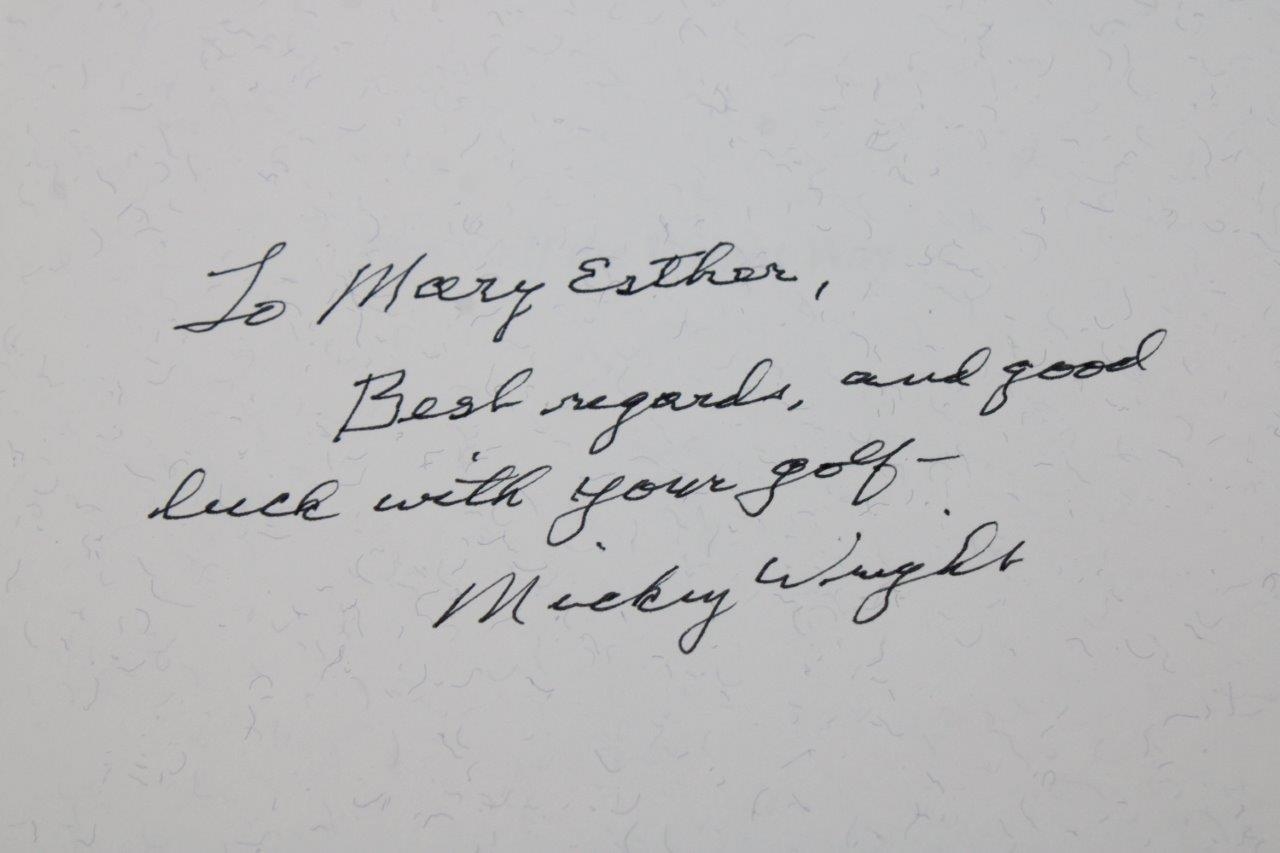 To Mary Esther,
Best regards, and good
luck with your golf –
Mickey Wright